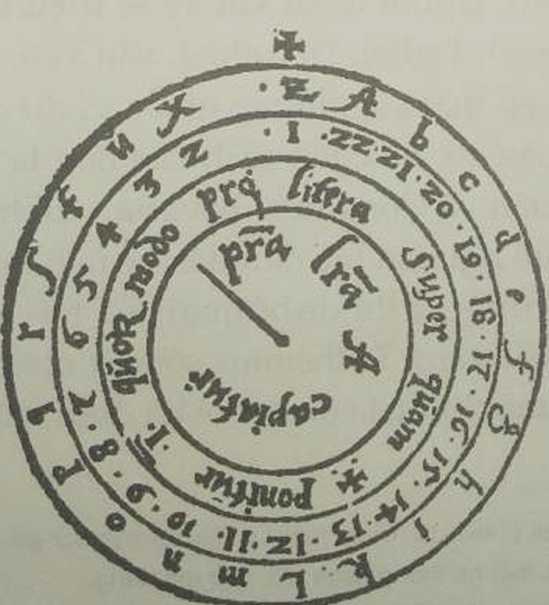 ✠
· Z A b c d e f G h i k L m n o p q r ſ t u X
· 1 · 22 · 21 · 20 · 19 · 18 · 17 · 16 · 15 · 14 · 13 · 12 · 11 · 10 · 9 · 8 · 7 6 5 4 3 2
modo pro litera super quam ✠ ponitur .I.
pr̄a lr̄a A capiatur